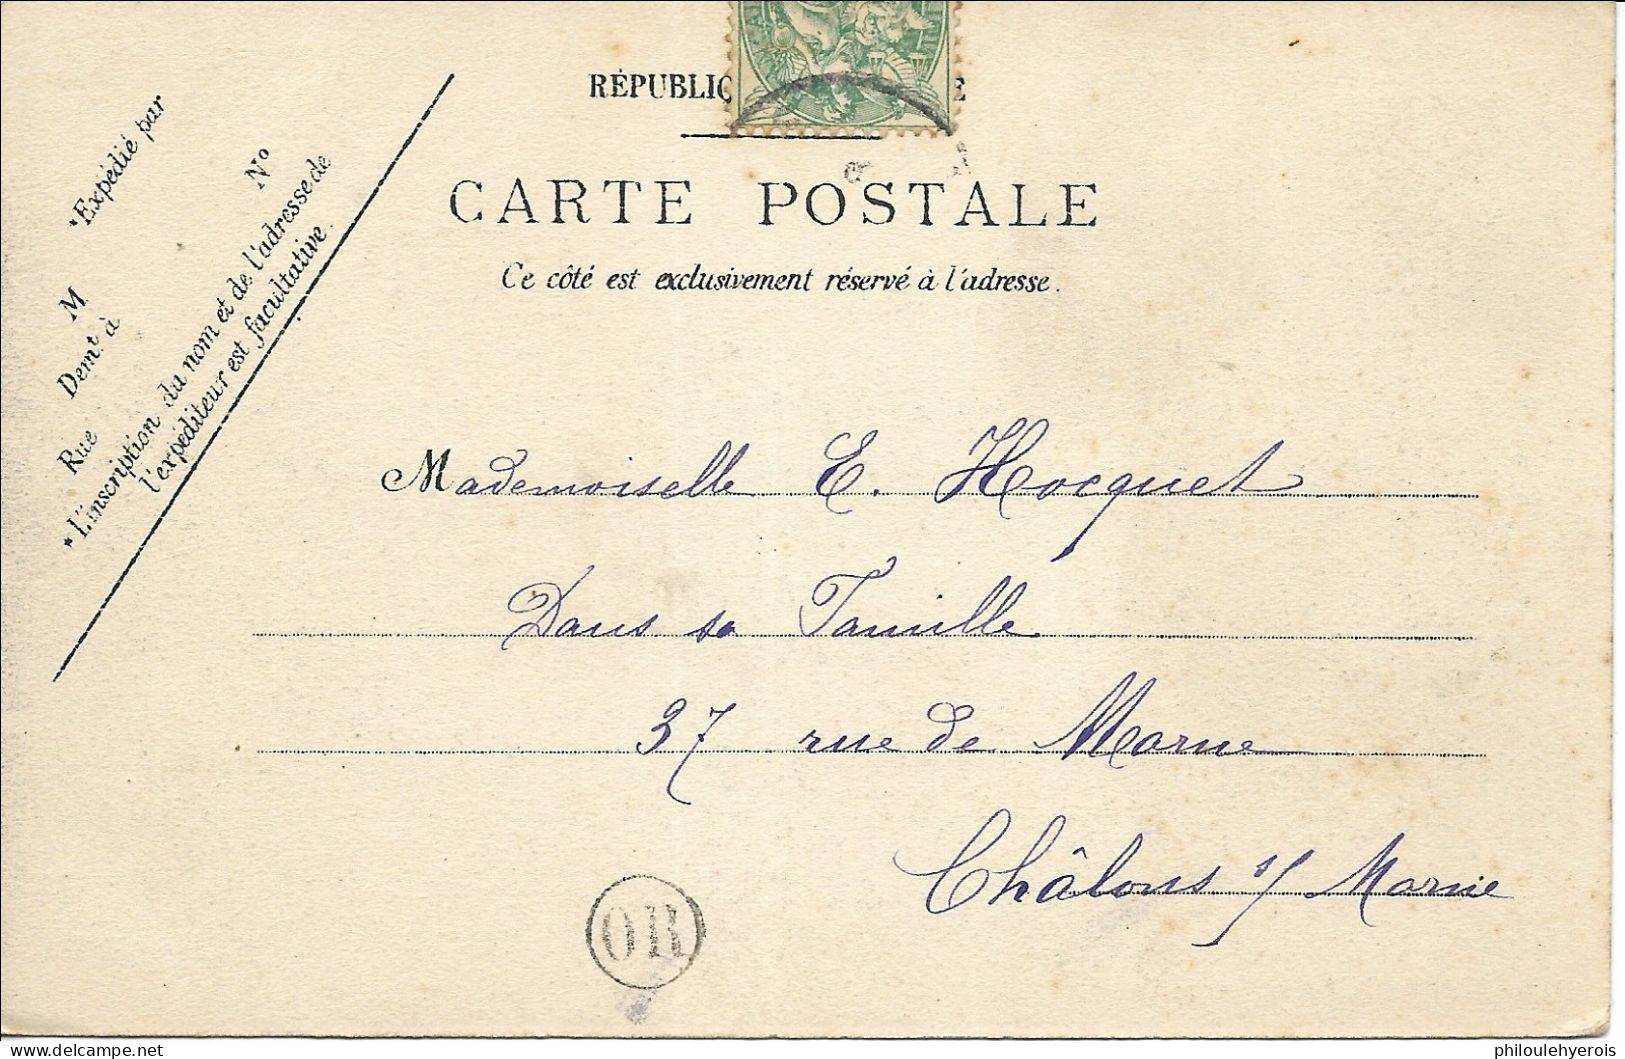 RÉPUBLIQ E
CARTE POSTALE
Ce côté est exclusivement réservé à l'adresse.
*Expédié par
M
Demt à
Rue No
*L'inscription du nom et de l'adresse de
l'expéditeur est facultative.
Mademoiselle E. Hocquet
Dans sa Famille
37 rue de Marne
Châlons s/ Marne
OR
philoulehyerois